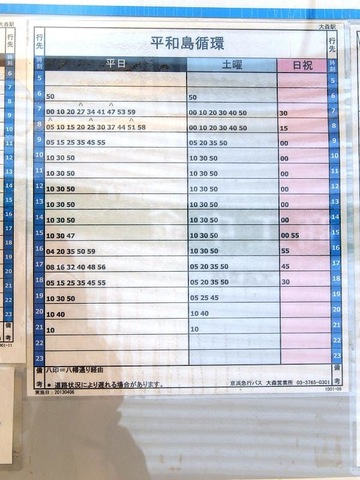 大森駅
行先
平和島循環
時刻 平日 土曜 日祝
5
6 50 50
7 00 10 20 27 34 41 47 53 59 00 10 20 30 40 50 30
8 05 10 15 20 25 30 37 44 51 58 00 10 20 30 40 50 15
9 05 15 25 35 45 55 05 20 35 50 00
10 10 30 50 10 30 50 00
11 10 30 50 10 30 50 00
12 10 30 50 10 30 50 00
13 10 30 50 10 30 50 00
14 10 30 50 10 30 50 00
15 10 30 47 10 30 50 00 55
16 04 20 35 50 59 10 30 50 55
17 08 16 32 40 48 56 05 20 35 50 45
18 05 15 25 35 45 55 05 20 35 50 30
19 10 30 50 05 25 45
20 10 40 10 40
21 10 10
22
23
備考 八印=八幡通り経由
● 道路状況により遅れる場合があります。 京浜急行バス 大森営業所 03-3765-0301
実施日:20130406